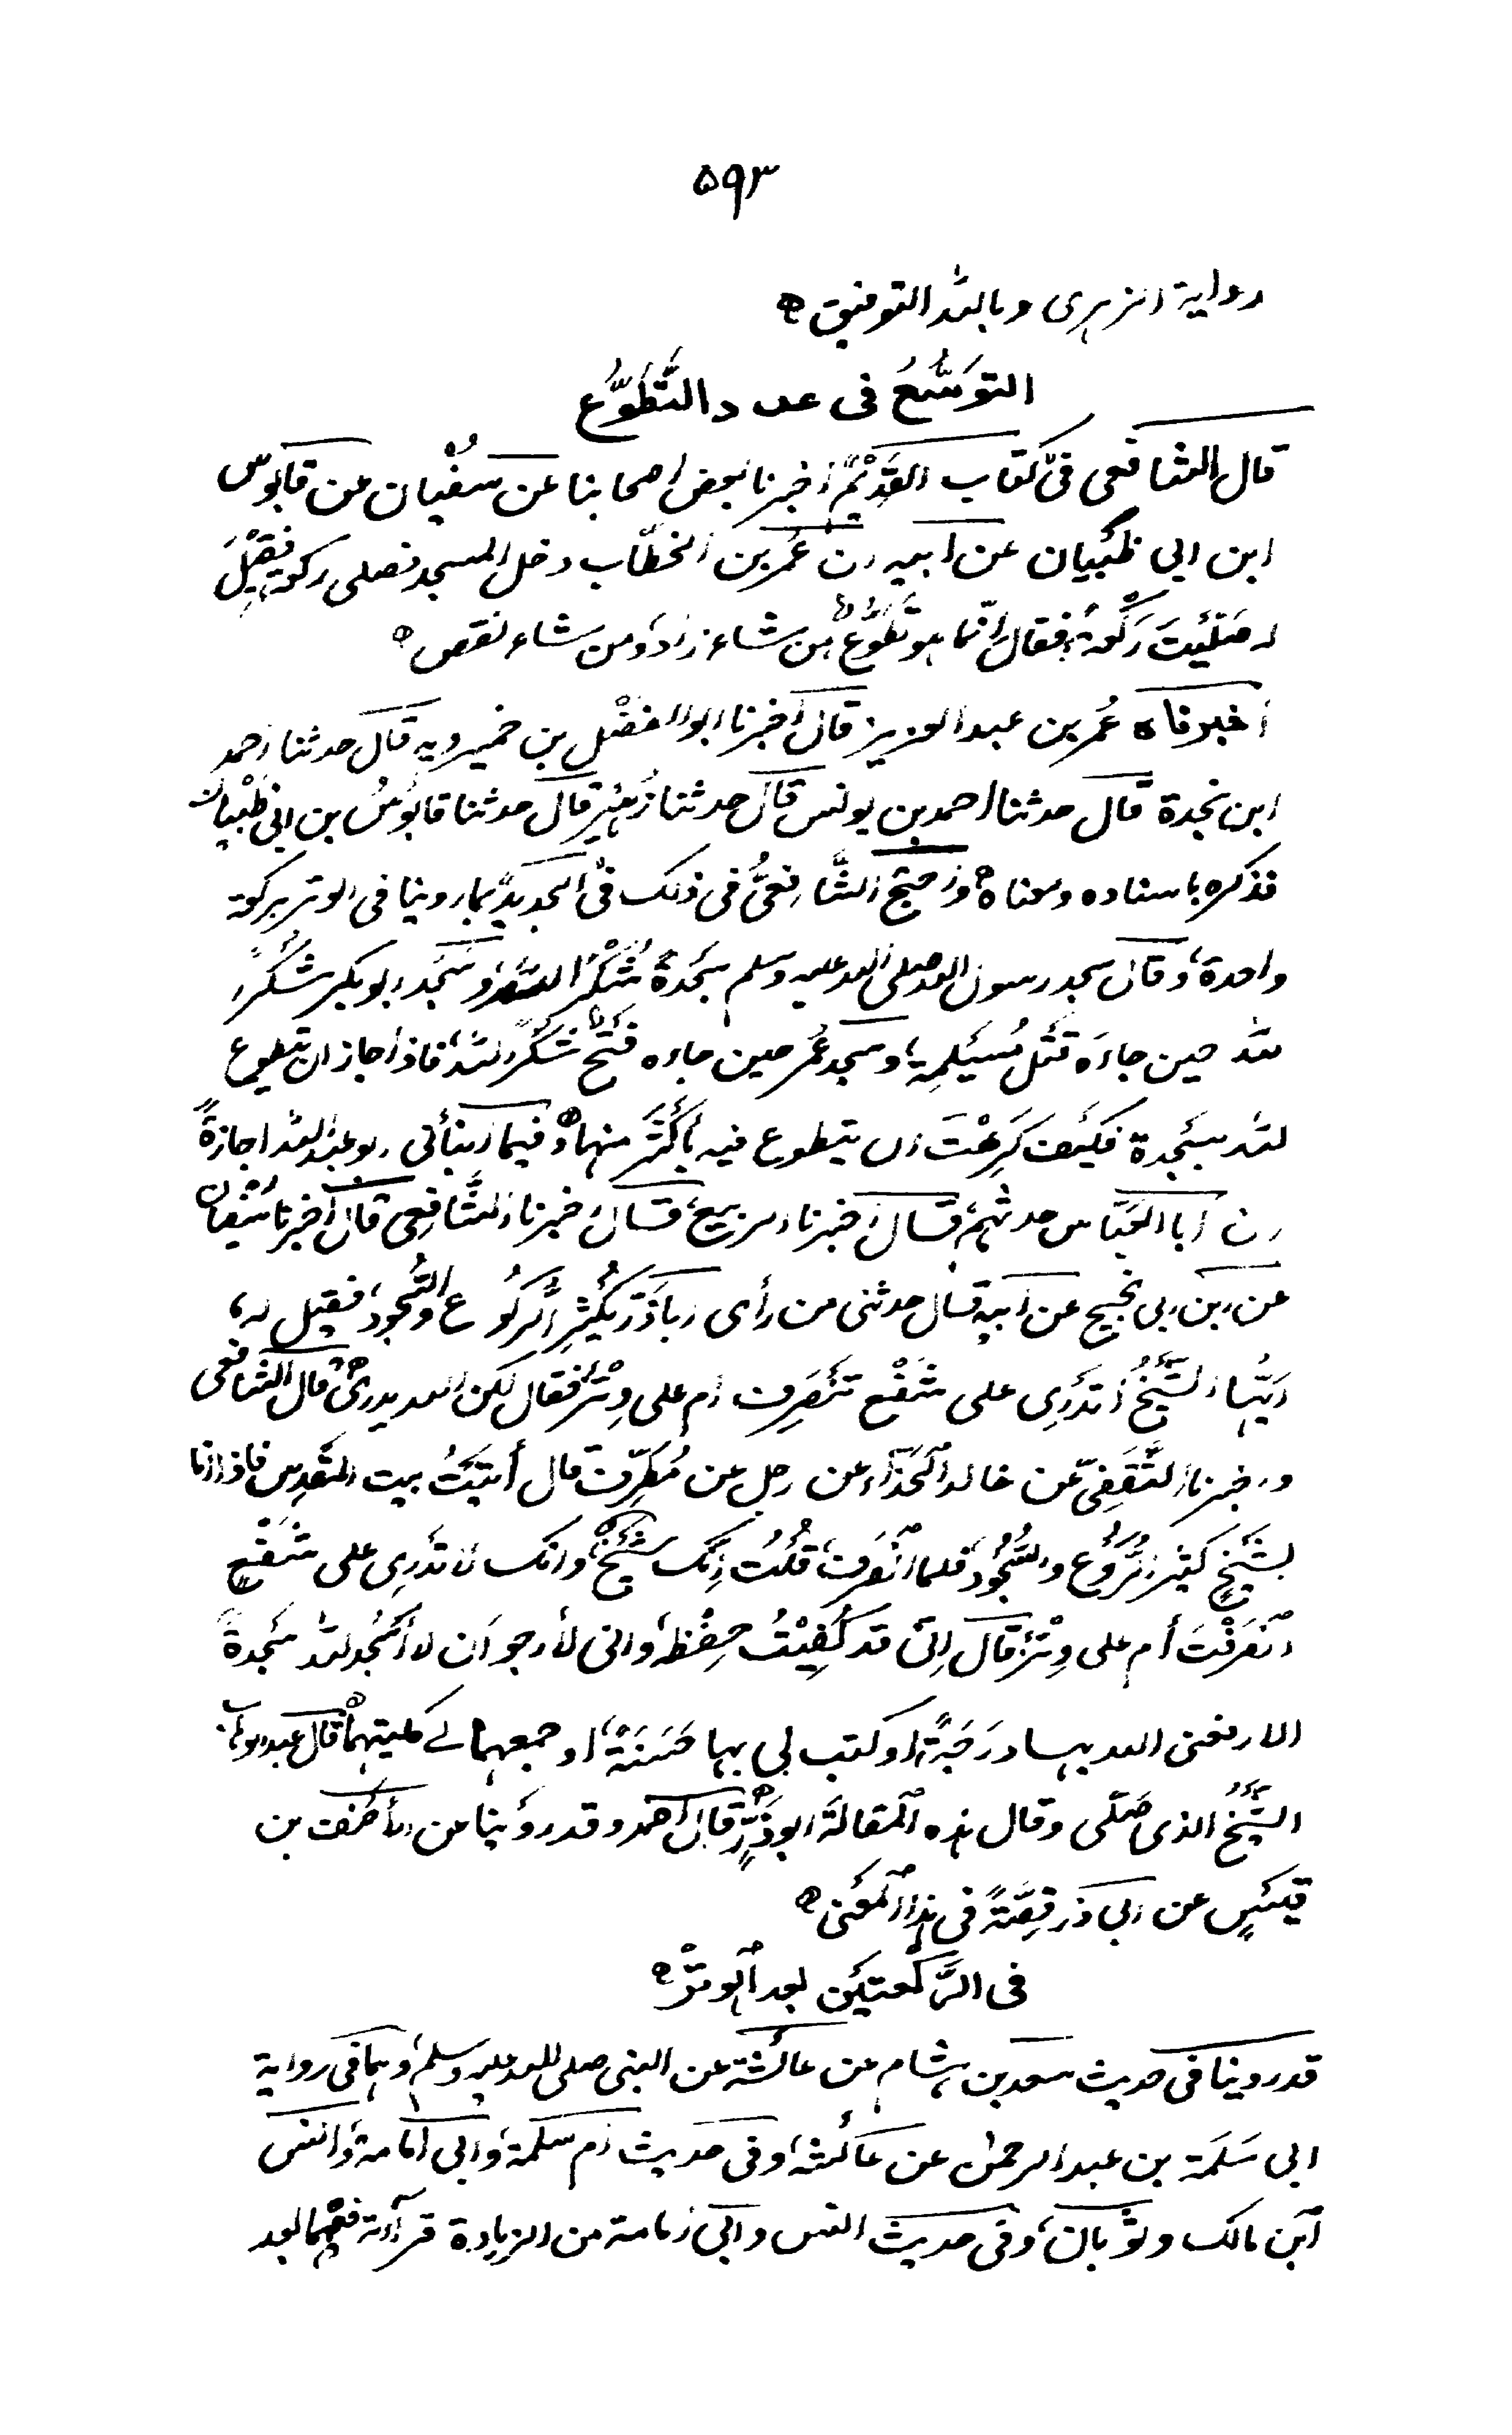 ۵۹۳
رواية الزهرى وبالله التوفيق ه
التوسُّعُ فى عدد التَّطَوُّع
قال الشافعى فى كتاب القديم اخبرنا بعض اصحابنا عن سُفْيان عن قابوس
ابن ابى ظَبْيان عن ابيه ان عُمَر بن الخطّاب دخل المسجد فصلى ركعة فقِيْلَ
له صَلَّيْتَ رَكْعةً فقال إنّما هو تَطَوُّعٌ من شاء زادَ ومن شاء نقص ه
أخبرناه عُمر بن عبد العزيز قال أخبرنا ابو الفضْل بن خميرويه قال حدثنا احمد
ابن نجدة قال حدثنا احمد بن يونس قال حدثنا زُهَيْر قال حدثنا قابُوسُ بن ابى ظَبْيان
فذكره باسناده ومعناه ه واحتج الشَّافِعىُّ فى ذلك فى الجديد بما روينا فى الوتر بركعة
واحدة، وقال سجد رسول الله صلى الله عليه وسلم سَجْدةً شُكْرًا لله، وسَجَد ابو بكر شُكرًا
لله حين جاءَه قَتْلُ مُسَيْلِمة، وسجد عُمر حين جاءه فَتْحٌ شُكْرًا لله، فاذا جاز ان يتطوع
لله بسَجْدة فكيْف كَرِهْتَ ان يتطوع فيه بأَكْثَر منها ه وفيما انبأنى ابو عبد الله اجازةً
ان ابا العَبَّاس حدثهم، قال أخبرنا الربيع، قال أخبرنا الشَّافعى قال أخبرنا سُفْيان
عن ابن ابى نجيح عن أبيه قال حدثنى من رأى اباذَرّ يُكْثِر الرُّكُوع والسُّجود، فقيل له،
ايُّها الشَّيْخُ أتدْرِى على شَفْع تنْصَرِف أم على وِتْرٍ، فقال لكن الله يدرى ه قال الشافعى
واخبرنا الثَّقَفِىّ عن خالد الحَذَّاء عن رجل عن مُطَرِّف قال أتيْتُ بيت المَقْدِس فاذا انا
بشَيْخٍ كثير الرُّكُوع والسُّجُود فلما انْصَرف، قُلْتُ إنّك شَيْخٌ، وانك لا تدْرِى على شَفْعٍ
انْصَرَفْتَ أم على وِتْرٍ، قال اِنّى قد كُفِيْتُ حِفْظه، وانى لأرجو أن لا أَسْجُد لله سَجْدةً
الا رفعنى الله بها دَرَجَةً، او كتب لى بها حَسَنَةً، او جمعهما لى كليتهما ه قال عبد الوهاب
الشَّيْخُ الذى صَلَّى وقال هذه المقالَة ابوذَرٍّ ه قال احمد وقد روينا عن الأحْنف بن
قَيْسٍ عن ابى ذر قِصَّةً فى هذا المَعْنى ه
فى الرَّكْعتيْن بعد الوتر ه
قد روينا فى حديث سعد بن هشام عن عائشة عن النبى صلى الله عليه وسلم، وهما فى رواية
ابى سَلَمَة بن عبد الرحمٰن عن عائشة، وفى حديث أم سلمة، وابى أمامة، وانس
ابن مالك وثوبان، وفى حديث انس وابى امامة من الزيادة قرآءته فيهما بعد